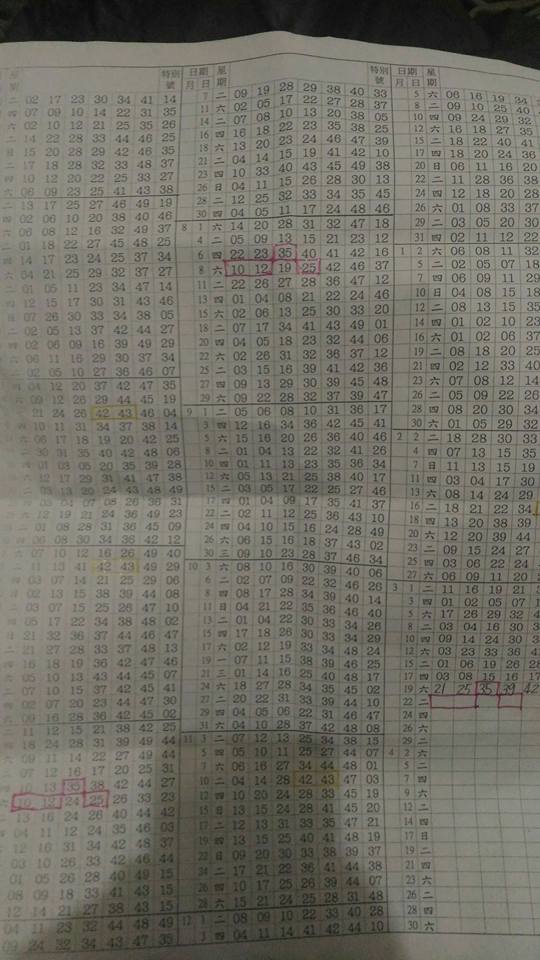 星 特別
期 號
二 02 17 23 30 34 41 14
四 07 09 10 14 22 31 35
六 02 10 12 21 25 35 26
二 14 22 28 33 44 46 25
日 15 20 28 29 42 46 35
二 17 18 28 32 33 48 37
四 10 18 20 22 25 33 27
六 06 09 23 25 41 43 38
二 13 17 25 27 46 49 19
四 02 06 10 20 38 40 46
六 06 08 12 16 32 49 37
二 01 18 22 27 45 48 25
四 14 17 23 24 25 37 34
六 04 21 25 29 32 37 27
二 01 05 11 23 34 47 14
四 12 15 17 30 31 43 46
六 07 26 30 33 34 38 05
二 02 05 13 37 42 44 27
四 02 06 09 16 39 49 29
六 06 11 16 29 30 37 34
二 02 05 10 27 36 46 07
四 04 12 20 37 42 47 35
六 09 12 26 29 44 45 19
21 24 26 42 43 46 04
四 10 11 31 34 37 38 14
六 06 17 18 19 20 42 25
二 30 31 35 40 42 48 06
四 01 03 05 20 35 39 28
六 12 17 29 31 41 47 38
二 03 13 20 24 43 48 49
六 12 19 21 24 36 49 23
二 01 08 28 31 36 45 09
四 06 08 30 34 36 42 12
六 07 10 12 16 26 49 40
二 11 13 41 42 43 49 29
四 03 07 14 21 25 29 06
六 02 13 15 38 39 44 08
03 07 15 25 26 47 10
四 05 17 22 34 38 48 02
日 21 32 36 37 44 46 47
二 21 27 28 33 37 48 13
四 16 18 19 36 42 47 46
六 05 10 13 43 44 45 07
二 07 10 15 37 42 45 41
四 02 07 20 23 44 47 30
六 09 16 28 36 42 45 02
11 12 15 21 38 42 25
四 18 24 28 31 39 49 44
六 09 11 14 22 27 49 44
二 07 12 16 17 20 25 31
10 13 35 38 42 44 27
六 10 12 24 25 26 33 23
13 16 24 26 40 44 42
四 04 11 12 24 35 46 03
02 12 16 31 34 42 48 37
03 10 26 33 42 46 44
01 05 26 28 40 49 15
08 09 18 33 41 43 15
12 14 21 27 38 43 15
04 11 23 32 44 48 49
09 24 32 34 43 47 35
日期 星 特別
月 期 號
7 二 09 19 28 29 38 40 33
11 六 02 05 17 22 27 28 37
14 二 07 08 10 13 20 38 05
16 四 16 18 22 23 35 38 25
18 六 13 20 23 24 46 47 39
21 二 04 14 15 19 41 42 10
23 四 10 33 40 43 45 49 38
26 日 04 11 15 26 28 30 13
28 二 12 25 32 33 34 35 45
30 四 04 05 11 17 24 48 46
8 1 六 14 20 28 31 32 47 18
4 二 05 09 13 15 21 23 12
6 四 22 23 35 40 41 42 16
8 六 10 12 19 25 42 46 37
11 二 22 26 27 28 36 47 12
13 四 01 04 08 21 22 24 46
15 六 02 06 13 25 30 33 20
18 二 07 17 34 41 43 49 01
20 四 04 05 18 23 32 44 06
22 六 02 26 31 32 36 37 12
25 二 03 15 16 39 41 42 36
27 四 09 13 29 30 39 45 48
29 六 09 22 28 32 37 39 47
9 1 二 05 06 08 10 31 36 17
3 四 12 16 34 36 42 45 41
5 六 15 16 20 26 36 40 46
8 二 01 04 13 22 32 41 26
10 四 01 11 13 23 35 36 34
12 六 05 13 21 25 38 40 17
15 二 03 05 17 22 25 27 46
17 四 01 04 09 17 35 41 37
22 二 02 11 12 25 36 43 10
24 四 04 10 15 16 24 28 49
26 六 06 15 16 18 37 43 02
30 三 09 10 23 28 37 46 34
10 3 六 08 10 16 30 39 40 06
6 二 02 07 09 22 32 46 26
8 四 08 17 28 34 39 40 14
11 日 04 21 22 35 36 46 40
13 二 01 04 22 30 33 34 48
15 四 17 18 26 30 33 34 29
17 六 02 12 19 33 34 48 24
19 一 07 11 15 38 39 46 25
21 三 01 14 16 25 40 48 17
24 六 18 27 28 34 35 45 02
27 二 20 22 31 33 39 44 10
29 四 04 05 06 22 31 46 47
31 六 04 10 28 37 42 48 08
11 3 二 07 12 13 25 34 38 15
5 四 05 10 11 25 27 44 07
7 六 06 16 27 34 44 48 01
10 二 04 14 28 42 43 47 03
12 四 10 20 24 28 33 45 19
15 日 13 15 24 28 41 45 20
17 二 12 13 31 33 35 47 21
19 四 13 15 25 40 41 48 19
22 日 09 20 30 33 38 39 37
24 二 17 21 22 36 41 44 38
26 四 10 17 25 26 39 44 07
28 六 15 21 24 25 28 31 48
12 1 二 08 09 10 22 33 40 28
3 四 04 11 14 41 42 44 10
日期 星
月 期
5 六 06 16 19 34
8 二 09 10 25 40
10 四 09 24 29 32
12 六 16 18 27 35
15 二 18 22 40 41
17 四 18 20 24 36
20 日 06 11 16 20
22 二 11 28 36 38
24 四 12 18 20 28
26 六 01 08 33 37
29 二 03 05 20 30
31 四 02 11 12 22
1 2 六 06 08 11 32
5 二 02 05 07 18
7 四 06 09 11 29
10 日 04 08 15 18
12 二 08 13 15 35
14 四 01 02 10 23
16 六 01 02 06 37
19 二 08 18 20 25
21 四 02 12 33 40
23 六 07 08 12 14
26 二 05 09 22 26
28 四 08 20 30 34
30 六 01 05 29 32
2 2 二 18 28 30 33
4 四 07 13 15 35
7 日 11 13 15 19
11 四 03 04 17 30
13 六 08 14 24 29
16 二 18 21 22 34
18 四 13 20 38 39
20 六 12 20 39 44
23 二 09 15 24 27
25 四 03 06 22 24
27 六 06 09 11 20
3 1 二 11 16 19 21
3 四 01 02 05 07
5 六 17 26 29 32
8 二 03 04 16 30
10 四 09 14 24 30
12 六 03 23 33 36
15 二 01 06 19 26
17 四 03 08 15 16 17
19 六 21 25 35 39 42
22 二
24 四
26 六
29 二
31 四
4 2 六
5 二
7 四
10 日
12 二
14 四
17 日
19 二
21 四
23 六
26 二
28 四
30 六